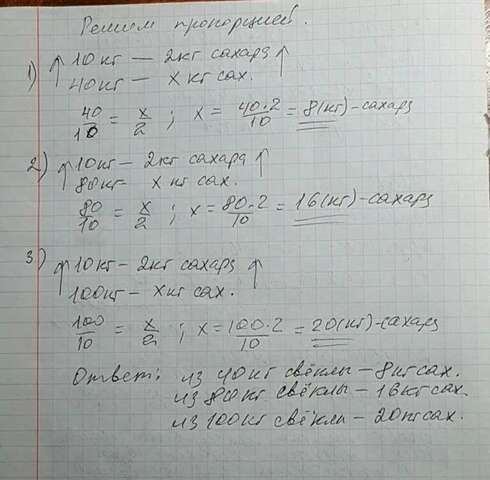 Решим пропорцией.
1) ↑ 10 кг — 2 кг сахара ↑
40 кг — x кг сах.
40/10 = x/2 ; x = 40·2/10 = 8(кг) - сахара
2) ↑ 10 кг — 2 кг сахара ↑
80 кг — x кг сах.
80/10 = x/2 ; x = 80·2/10 = 16(кг) - сахара
3) ↑ 10 кг — 2 кг сахара ↑
100 кг — x кг сах.
100/10 = x/2 ; x = 100·2/10 = 20(кг) - сахара
Ответ: из 40 кг свёклы — 8 кг сах.
из 80 кг свёклы — 16 кг сах.
из 100 кг свёклы — 20 кг сах.